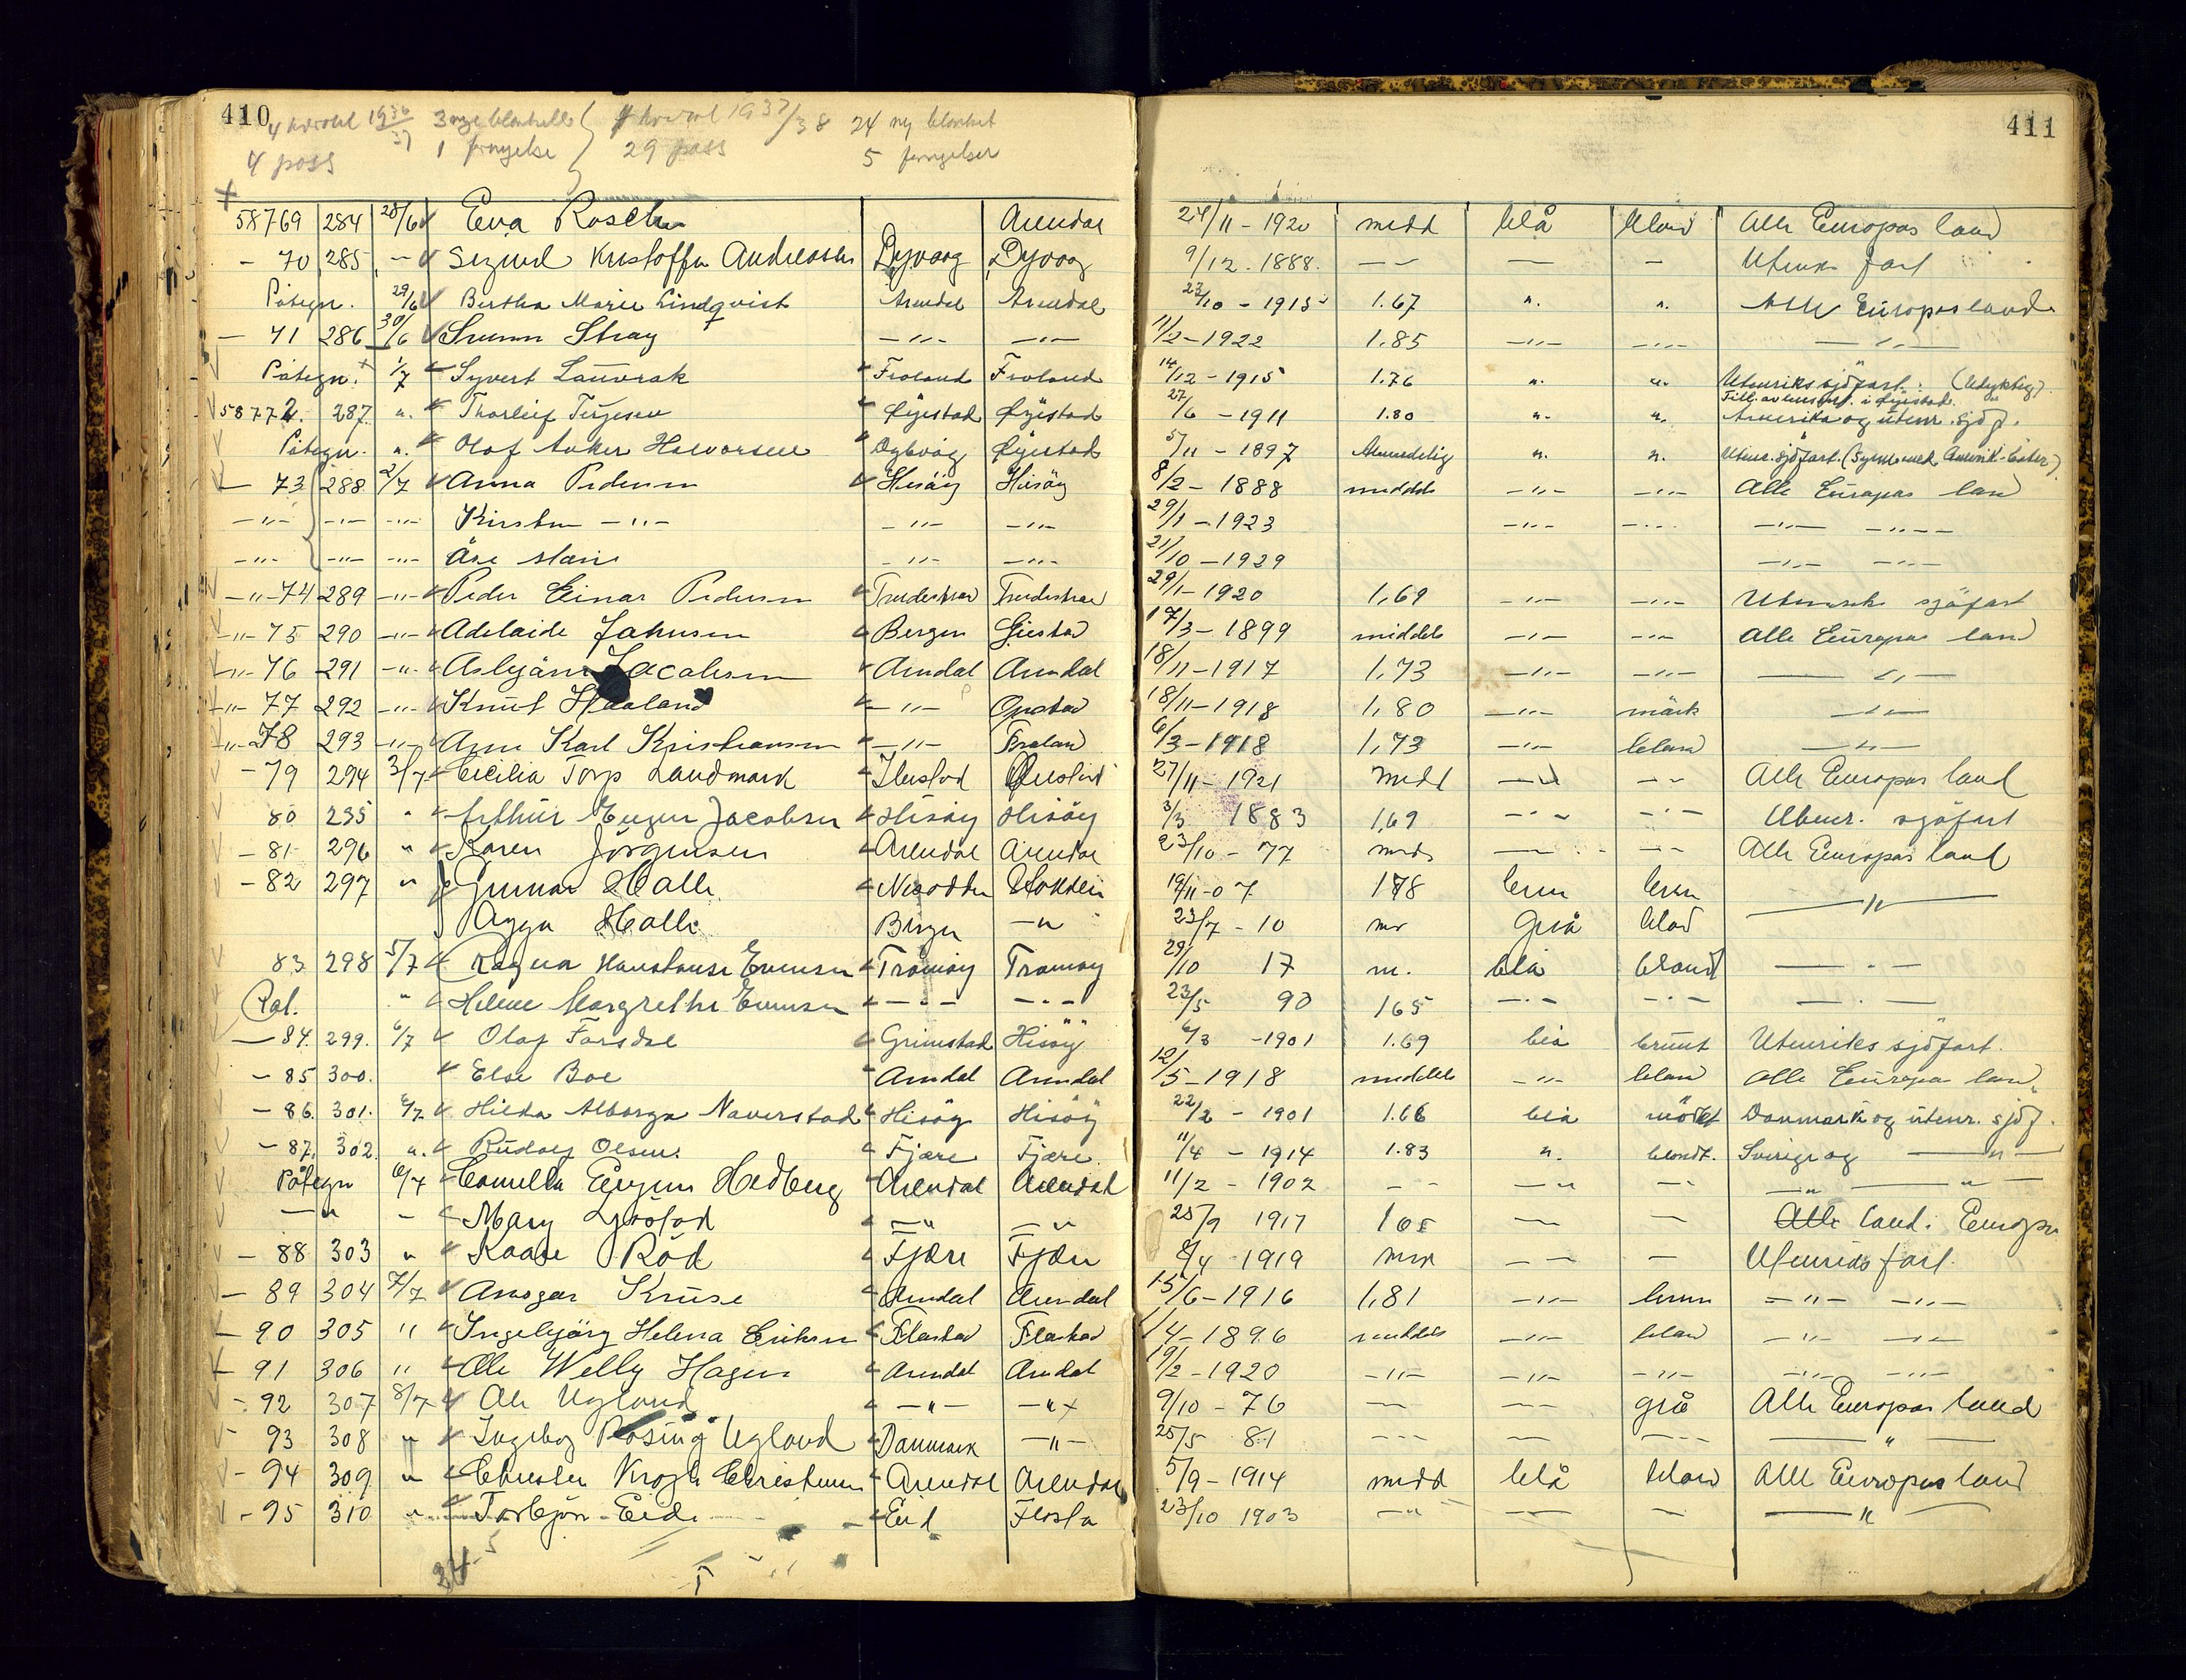 410 411
4 kvartal 1936/37 3 nye blanketter } kvartal 1937/38 24 ny blanket
4 pass 1 fornyelse 29 pass 5 fornyelser
58769 284 28/6 Eva Arendal 24/11-1920 midd blå blond Alle Europas land
- 70 285 - Sigurd Kristoffer Andreassen Dyvaag Dyvaag 9/12.1888. -- — - Utenr. fart
Påtegn. 29/6 Bertha Marie Lindqvist Arendal Arendal 23/10-1915 1.67 ". ". Alle Europas land
- 71 286 30/6 Stray -"- -"- 11/2-1922 1.85 -"- -"- -"-
Påtegn. 1/7 Syvert Lauvrak Froland Froland 14/12-1915 1.76 ". ". Utenriks sjöfart. (Udyktig)
58772. 287. ". Thorleif Terjesen Øyestad Øyestad 27/6-1911 1.80 ". ". Amerika og utenr. sjöf.
Påtegn. ". Olaf Anker Halvorsen Øyestad 5/11-1897 Almindelig ". ". Utenr. sjöfart.
- 73 288 2/7 Anna Pedersen Hisöy Hisöy 8/2-1888 middels -"- -"- Alle Europas land
-"- -"- -"- Kirsten -"- -"- -"- 29/1-1923 -"- -"- -"- -"-
-"- -"- -"- Åse Marie -"- -"- 21/10-1929 -"- -"-
-"-74 289 -"- Peder Einar Pedersen 29/1-1920 1,69 -"- -"- Utenriks sjöfart
-"-75 290 -"- Adelaide Johnsen Bergen 17/3-1899 middels -"- -"- Alle Europas land
-"-76 291 -"- Asbjörn Jacobsen Arendal Arendal 18/11-1917 1,73 -"- -"- -"-
-"-77 292 -"- Knut Haaland -"- 18/11-1918 1,80 -"- mörk -"-
-"-78 293 -"- Arne Karl Kristiansen -"- Froland 6/3-1918 1,73 -"- blond -"-
- 79 294 3/7 Cecilia Torp Landmark 27/11-1921 midd -"- -- Alle Europas land
80 295 " Arthur Jacobsen Hisöy Hisöy 3/3 1883 1,69 -"- -"- Utenr. sjöfart
- 81 296 " Karen Jörgensen Arendal Arendal 23/10-77 mid — -- Alle Europas land
- 82 297 " { Gunnar Halle Stokken 19/11-07 178 brun brun —"—
Halle Bergen -" 23/7-10 Grå blond
83 298 5/7 Ragna Evensen Tromöy Tromöy 29/10 17 m. blå blond —"—
Påt. " Helene Margrethe Evensen -"- -"- 23/5 90 165 -"- -"- -"-
- 84. 299. 6/7 Olaf Forsdal Grimstad Hisöy 6/3-1901 1.69 blå brunt Utenriks sjöfart.
- 85 300. Else Boe Arendal Arendal 12/5-1918 middels -"- blond Alle Europas land
- 86. 301. 6/7 Hilda Alborga Naverstad Hisöy Hisöy 22/2-1901 1.66 blå mörkt Danmark og utenr. sjöf.
- 87. 302. ". Rudolf Olsen. Fjære Fjære 11/4-1914 1.83 ". blondt. Sverige og —"—
Påtegn 6/7 Hedberg Arendal Arendal 11/2-1902 -- -" -- -" —"—
-" - Mary -" -" 25/9 1917 165 — — Alle land i Europa
- 88 303 " Kaare Röd Fjære Fjære 8/4-1919 — — Utenriks fart.
- 89 304 7/7 Ansgar Kruse Arendal Arendal 15/6-1916 1,81 -"- brun -"- -"-
- 90 305 " Ingebjörg Helena Eriksen Flostad Flostad 1/4-1896 middels -"- blond -"- -"-
- 91 306 " Ole Willy Hagen Arendal Arendal 19/2-1920 -"- -"- -"- -"- -"-
- 92 307 8/7 Ole Ugland -"- -"- 9/10-76 -- -- grå Alle Europas land
- 93 308 " Ingeborg Rosing Ugland Danmark -"- 25/5 81 --- — --- —"—
- 94 309 " Christen Krogh Christensen Arendal Arendal 5/9-1914 midd blå blond Alle Europas land
- 95 310 " Torbjörn Eide Eid Flosta 23/10 1903 -"- — — —"—
24 5